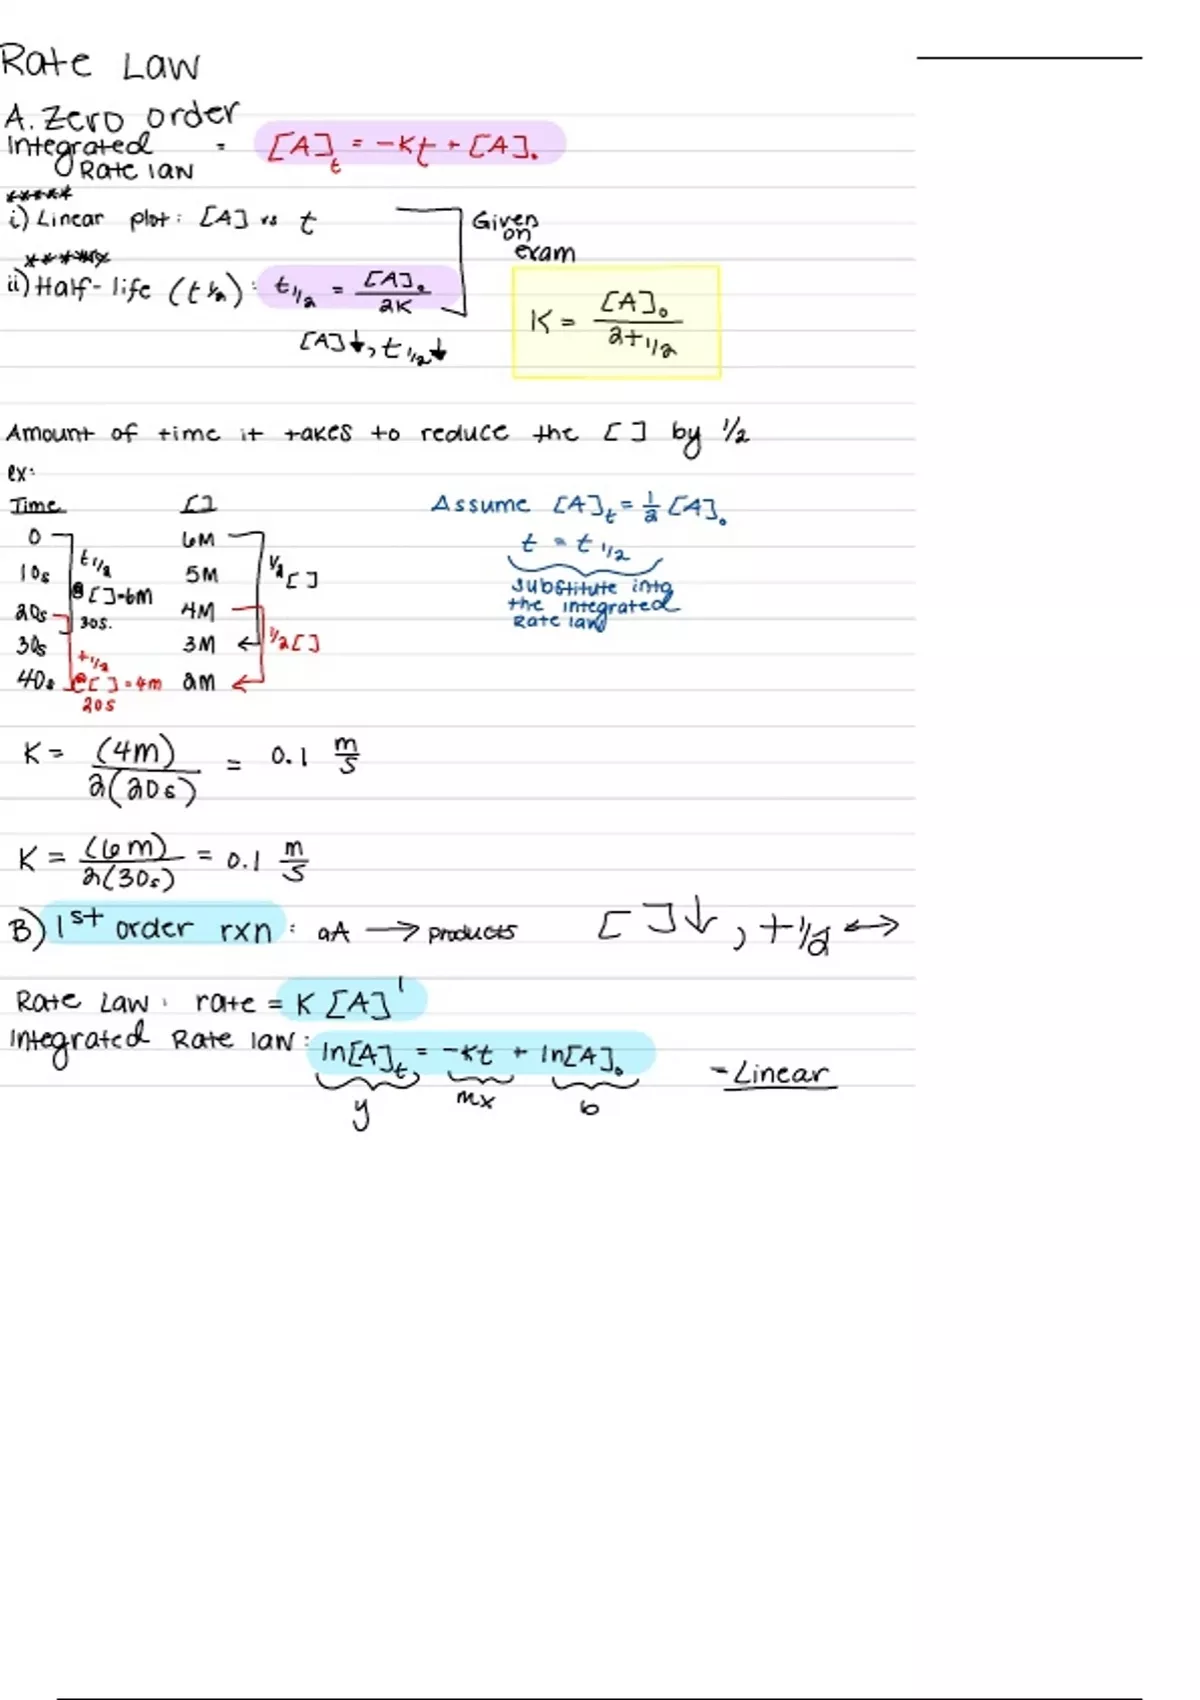 Rate Law
A. Zero order
Integrated Rate law = [A]t = -Kt + [A]₀
*****
i) Linear plot: [A] vs t
Given on exam
*****
ii) Half-life (t½): t1/2 = [A]₀ / 2K
K = [A]₀ / 2t1/2
[A]↓, t1/2↓
Amount of time it takes to reduce the [ ] by 1/2
ex:
Time [ ]
0 6M
10s 5M
20s 4M
30s 3M
40s 2M
t1/2
@ [ ]=6M
30s.
t1/2
@ [ ] = 4m
20s
1/2 [ ]
1/2 [ ]
Assume [A]t = 1/2 [A]₀
t = t1/2
substitute into
the integrated
Rate law
K = (4m) / 2(20s) = 0.1 m/s
K = (6m) / 2(30s) = 0.1 m/s
B) 1st order rxn: aA → products [ ]↓, t1/2 ↔
Rate Law: rate = K [A]¹
Integrated Rate law: ln[A]t = -Kt + ln[A]₀ - Linear
y mx b